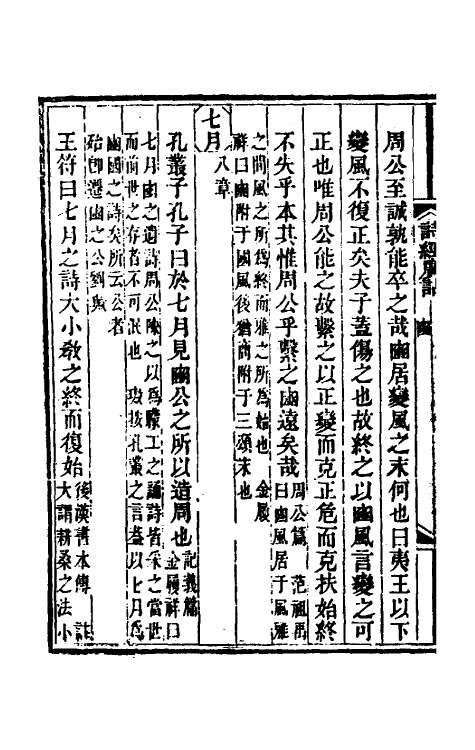 周公至誠孰能卒之哉豳居變風之末何也曰夷王以下
變風不復正矣夫子蓋傷之也故終之以豳風言變之可
正也唯周公能之故繫之以正變而克正危而克扶始終
不失乎本其惟周公乎繫之豳遠矣哉 周公篇 范祖禹曰豳風居于風雅
之間風之所爲終而雅之所爲始也 金履
祥曰豳附于國風後猶商附于三頌末也
七月八章
孔叢子孔子曰於七月見豳公之所以造周也 記義篇 金履祥曰
七月豳之遺詩周公陳之以爲矇工之誦詩皆采之當世
而前世之存者不可泯也 按孔叢之言蓋以七月爲
豳國之詩矣所云公者
殆卽遷豳之公劉與
王符曰七月之詩大小敎之終而復始 後漢書本傳 註
大謂耕桑之法小
詩經 豳